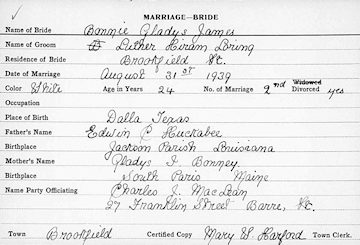 MARRIAGE—BRIDE
Name of Bride Bonnie Gladys James
Name of Groom Luther Hiram Loring
Residence of Bride Brookfield Vt.
Date of Marriage August 31st 1939
Color White Age in Years 24 No. of Marriage 2nd Widowed Divorced yes
Occupation
Place of Birth Dalla Texas
Father's Name Edwin C Huckabee
Birthplace Jackson Parish Louisiana
Mother's Name Gladys I Bonney
Birthplace South Paris Maine
Name Party Officiating Charles J. MacLean
27 Franklin Street Barre, Vt.
Town Brookfield Certified Copy Mary W. Harford Town Clerk.